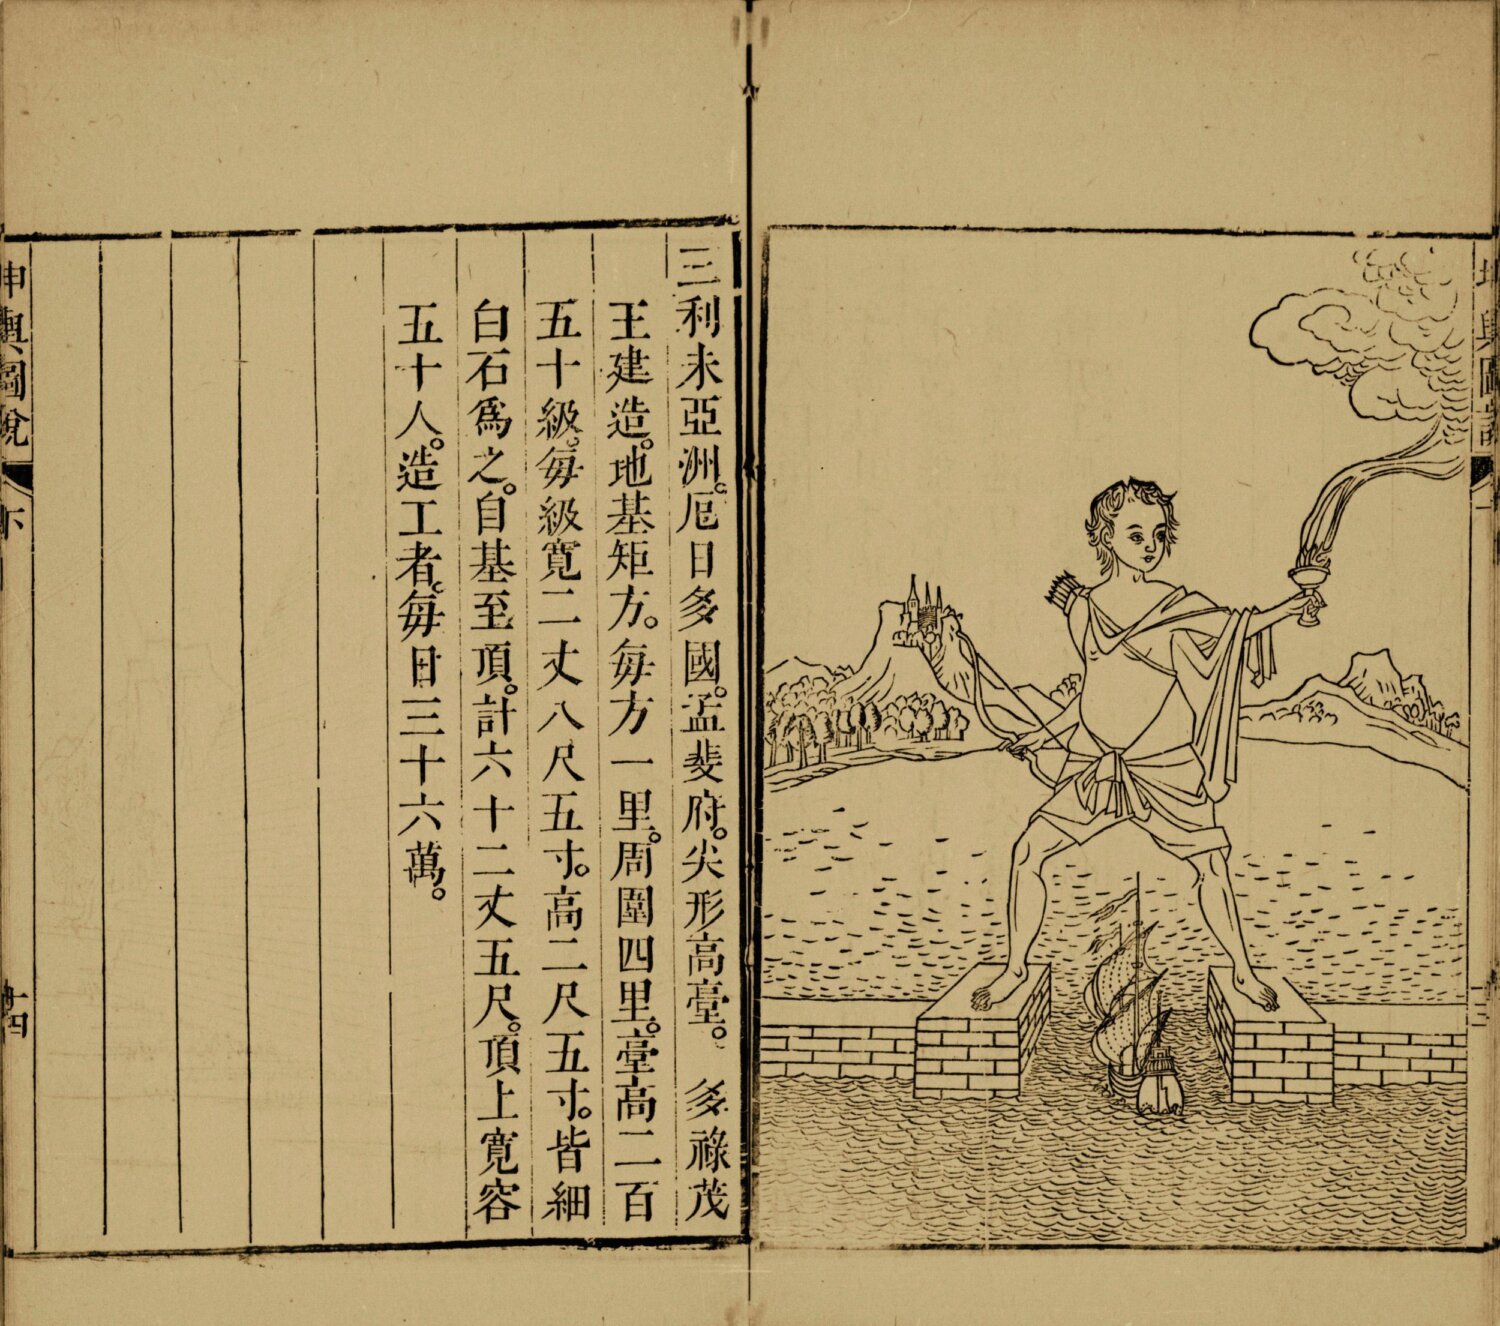 坤輿圖說
下
十三
三利未亞洲。厄日多國。孟斐府。尖形高臺。 多祿茂
王建造。地基矩方。每方一里。周圍四里。臺高二百
五十級。每級寬二丈八尺五寸。高二尺五寸。皆細
白石爲之。自基至頂。計六十二丈五尺。頂上寬容
五十人。造工者。每日三十六萬。
坤輿圖說
下
十四